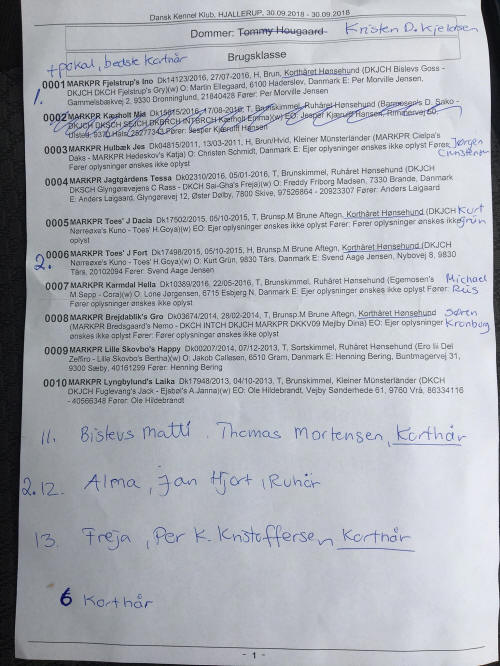 Dansk Kennel Klub, HJALLERUP, 30.09.2018 - 30.09.2018
Dommer: Tommy Hougaard Kristen D. Kjeldsen
+pokal, bedste korthår
Brugsklasse
1.
0001 MARKPR Fjelstrup's Ino Dk14123/2016, 27/07-2016, H, Brun, Korthåret Hønsehund (DKJCH Bislevs Goss -
DKJCH DKCH Fjelstrup's Gry)(w) O: Martin Ellegaard, 6100 Haderslev, Danmark E: Per Morville Jensen,
Gammelsbækvej 2, 9330 Dronninglund, 21840428 Fører: Per Morville Jensen
0002 MARKPR Kæsholt Mia 17/08-2016, T, Brunskimmel, Ruhåret Hønsehund
Fører: Jesper Kjærulf Hansen
0003 MARKPR Hulbæk Jes Dk04815/2011, 13/03-2011, H, Brun/Hvid, Kleiner Münsterländer (MARKPR Cielpa's
Daks - MARKPR Hedeskov's Katja) O: Christen Schmidt, Danmark E: Ejer oplysninger ønskes ikke oplyst Fører: Jørgen
Fører oplysninger ønskes ikke oplyst
0004 MARKPR Jagtgårdens Tessa Dk02310/2016, 05/01-2016, T, Brunskimmel, Ruhåret Hønsehund (DKJCH
DKSCH Glyngørevejens C Rass - DKCH Sai-Gha's Freja)(w) O: Freddy Friborg Madsen, 7330 Brande, Danmark
E: Anders Laigaard, Glyngørevej 12, Øster Dølby, 7800 Skive, 97526864 - 20923307 Fører: Anders Laigaard
0005 MARKPR Toes' J Dacia Dk17502/2015, 05/10-2015, T, Brunsp.M Brune Aftegn, Korthåret Hønsehund (DKJCH Kurt
Nørreøxe's Kuno - Toes' H.Goya)(w) EO: Ejer oplysninger ønskes ikke oplyst Fører: Fører oplysninger ønskes ikke Grün
oplyst
2.
0006 MARKPR Toes' J Fort Dk17498/2015, 05/10-2015, H, Brunsp.M Brune Aftegn, Korthåret Hønsehund (DKJCH
Nørreøxe's Kuno - Toes' H.Goya)(w) O: Kurt Grün, 9830 Tårs, Danmark E: Svend Aage Jensen, Nybovej 8, 9830
Tårs, 20102094 Fører: Svend Aage Jensen
0007 MARKPR Karmdal Hella Dk10389/2016, 22/05-2016, T, Brunskimmel, Ruhåret Hønsehund (Egemosen's Michael
M Sepp - Cora)(w) O: Lone Jørgensen, 6715 Esbjerg N, Danmark E: Ejer oplysninger ønskes ikke oplyst Fører: Riis
Fører oplysninger ønskes ikke oplyst
0008 MARKPR Brejdablik's Gro Dk03674/2014, 28/02-2014, T, Brunsp.M Brune Aftegn, Korthåret Hønsehund Søren
(MARKPR Bredsgaard's Nemo - DKCH INTCH DKJCH MARKPR DKKV09 Mejlby Dina) EO: Ejer oplysninger Kronborg
ønskes ikke oplyst Fører: Fører oplysninger ønskes ikke oplyst
0009 MARKPR Lille Skovbo's Happy Dk00207/2014, 07/12-2013, T, Sortskimmel, Ruhåret Hønsehund (Ero Iii Del
Zeffiro - Lille Skovbo's Bertha)(w) O: Jakob Callesen, 6510 Gram, Danmark E: Henning Bering, Buntmagervej 31,
9300 Sæby, 40161299 Fører: Henning Bering
0010 MARKPR Lyngbylund's Laika Dk17948/2013, 04/10-2013, T, Brunskimmel, Kleiner Münsterländer (DKCH
DKJCH Fuglevang's Jack - Ejsbøl's A Janna)(w) EO: Ole Hildebrandt, Vejby Sønderhede 61, 9760 Vrå, 86334116
- 40566348 Fører: Ole Hildebrandt
11. Bislevs Matti. Thomas Mortensen, Korthår
2. 12. Alma, Jan Hjort, Ruhår
13. Freja, Per K. Kristoffersen Korthår
6 Korthår
- 1 -